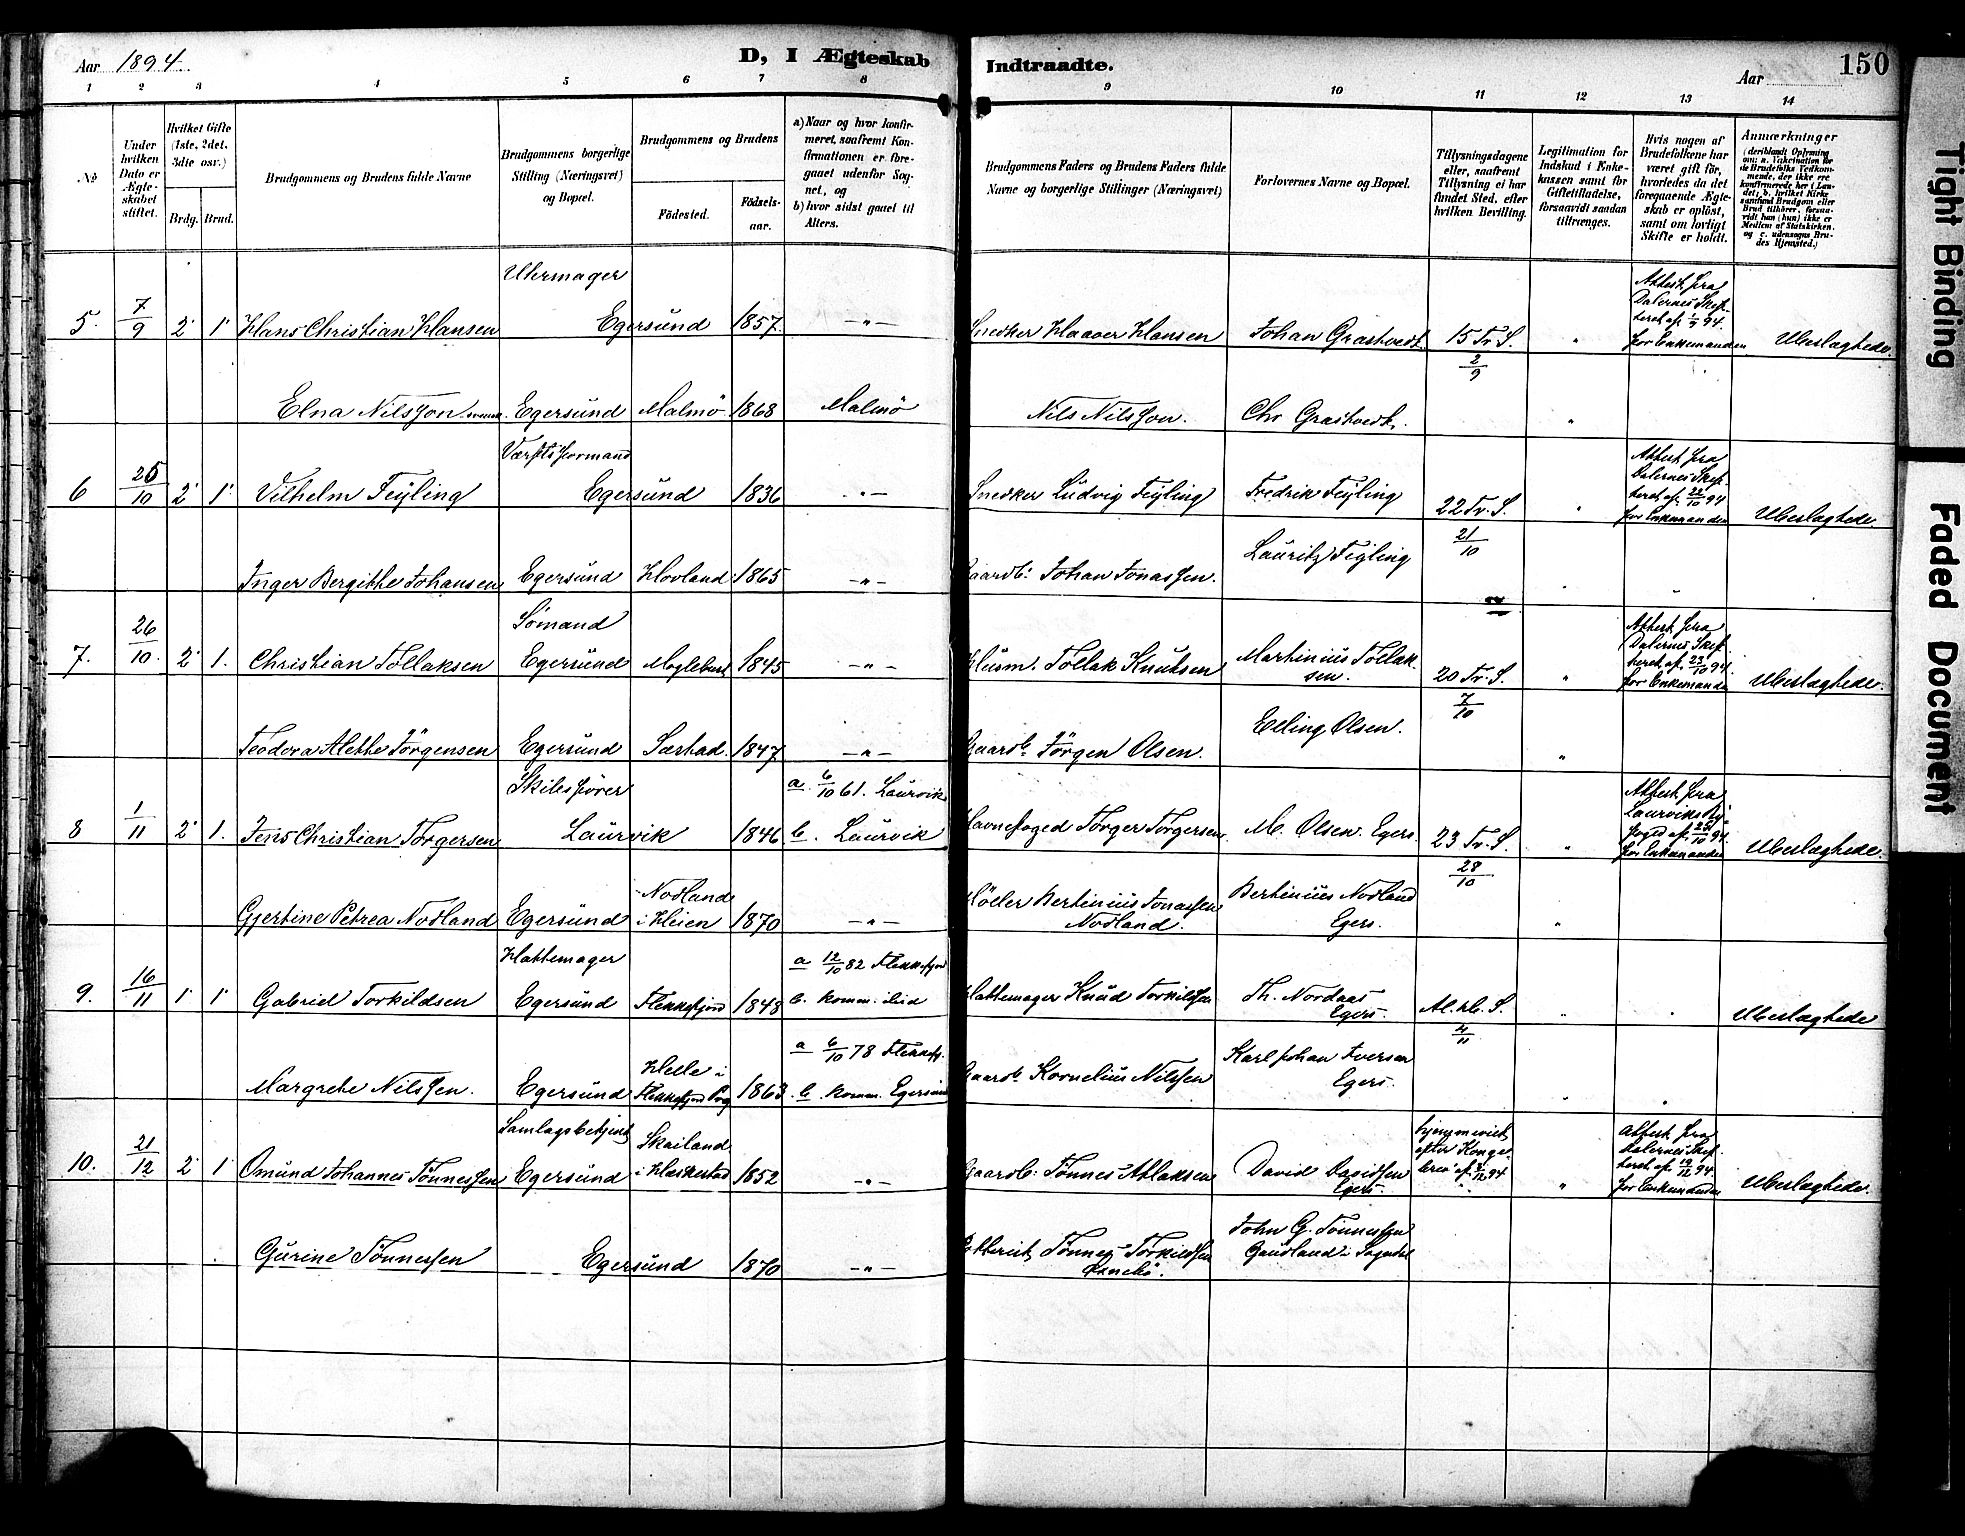 Aar 1894.
D, I Ægteskab Indtraadte.
Aar
150
1 2 3 4 5 6 7 8 9 10 11 12 13 14
№
Under hvilken Dato er Ægteskabet stiftet.
Hvilket Gifte (1ste, 2det, 3die osv.)
Brdg. Brud.
Brudgommens og Brudens fulde Navne
Brudgommens borgerlige Stilling (Næringsvei) og Bopæl.
Brudgommens og Brudens
Fødested.
Fødselsaar.
a) Naar og hvor konfirmeret, saafremt Konfirmationen er foregaaet udenfor Sognet, og
b) hvor sidst gaaet til Alters.
Brudgommens Faders og Brudens Faders fulde Navne og borgerlige Stillinger (Næringsvei)
Forlovernes Navne og Bopæl.
Tillysningsdagene eller, saafremt Tillysning ei har fundet Sted, efter hvilken Bevilling.
Legitimation for Indskud i Enkekassen samt for Giftetilladelse, forsaavidt saadan tiltrænges.
Hvis nogen af Brudefolkene har været gift før, hvorledes da det foregaaende Ægteskab er opløst, samt om lovligt Skifte er holdt.
Anmærkninger (deriblandt Oplysning om: a. Vakcination for de Brudefolks Vedkommende, der ikke ere konfirmerede her i Landet; b. hvilket Kirkesamfund Brudgom eller Brud tilhører, forsaavidt han (hun) ikke er Medlem af Statskirken, og c. udensogns Brudes Hjemsted.)
5. 7/9 2' 1' Hans Christian Hansen Uhrmager Egersund 1857 —„— Snedker Haaver Hansen Johan Grastvedt 15 Tr. S. 2/9 „ Attest fra Dalernes Skifteret af 1/9 94. for Enkemanden Ubeslægtede.
Elna Nilsson Egersund Malmö 1868 Malmö Nils Nilsson. Chr Grastvedt. „
6 25/10 2' 1' Vilhelm Feyling Værftsformand Egersund 1836 —„— Snedker Ludvig Feyling Fredrik Feyling 22 Tr. S. 21/10 „ Attest fra Dalernes Skifteret af 22/10 94 for Enkemanden Ubeslægtede
Inger Bergithe Johansen Egersund Hovland 1865 —„— Gaardb. Johan Jonassen. Lauritz Feyling
7. 26/10. 2' 1. Christian Tollaksen Sømand Egersund 1845 —„— Husm. Tollak Knutsen Martinius Tollaksen. 20 Tr. S. 7/10 „ Attest fra Dalernes Skifteret af 23/10 94. for Enkemanden Ubeslægtede.
Teodora Alethe Jörgensen Egersund Sæstad. 1847 —„— Gaardb. Jörgen Olsen. Elling Olsen. „
8 1/11 2' 1. Jens Christian Torgersen Skibsfører Laurvik 1846 a. 6/10 61. Laurvik b. Laurvik Havnefoged Torger Torgersen M. Olsen. Egers. 23 Tr. S. 28/10 „ Attest fra Laurviks Byfoged af 25/10 94. for Enkemanden Ubeslægtede.
Gjertine Petrea Nodland Egersund Nodland i Heien 1870 —„— Möller Bertinius Jonassen Nodland. Bertinius Nodland Egers. „
9. 16/11 1' 1' Gabriel Torkildsen Hattemager Egersund Flekkefjord 1848 a 12/10 82 Flekkefjord b. komm. ibid Hattemager Knud Torkildsen Th. Nordaas Egers. Al. H. S. 4/11 Ubeslægtede
Margrete Nilssen. Egersund Helle i Flekkefjord Prg 1863 a 6/10 78 Flekkefj. b. komm. Egersund Gaardb. Kornelius Nilssen Karl Johan Iversen Egers.
10. 21/12 2' 1' Omund Johannes Tönnessen Samlagsbetjent Egersund Skailand i Haskestad 1852 —„— Gaardb. Tönnes Atlaksen David Davidsen Egers. hjemmeviet efter Kongebrev af 8/12 94 „ Attest fra Dalernes Skifteret af 19/12 94 for Enkemanden Ubeslægtede.
Gurine Tönnessen Egersund 1870 —„— Tönnes Torkildsen John G. Tönnessen Gaudland i Sogndal
Tight Binding
Faded Document